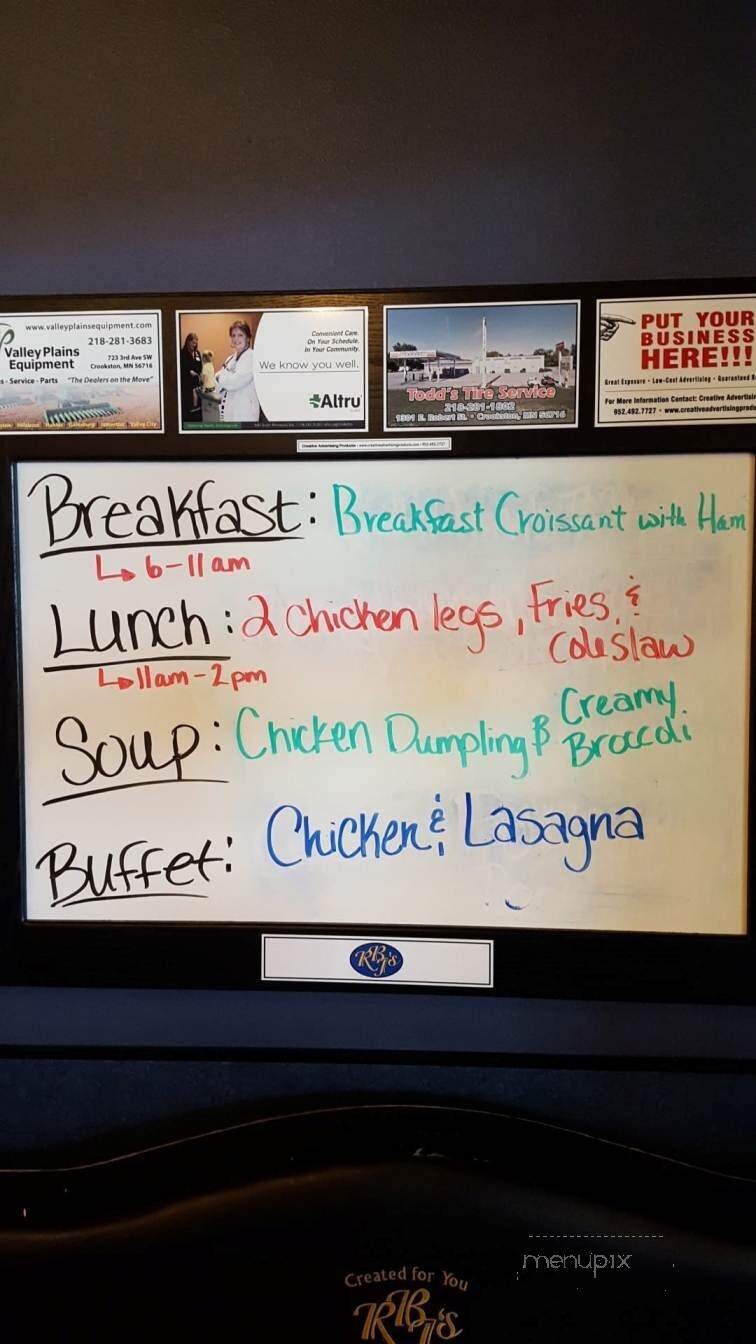 www.valleyplainsequipment.com
218-281-3683
Valley Plains
Equipment
723 3rd Ave SW
Crookston, MN 56716
s - Service - Parts "The Dealers on the Move"
Convenient Care.
On Your Schedule.
In Your Community.
We know you well.
Altru
Todd's Tire Service
218-281-1802
1301 E. Robert St. • Crookston, MN 56716
PUT YOUR
BUSINESS
HERE!!!
Great Exposure • Low-Cost Advertising • Guaranteed
For More Information Contact: Creative Advertisin
952.492.7727 • www.creativeadvertisingpro
Breakfast: Breakfast Croissant with Ham
↳ 6-11am
Lunch: 2 chicken legs, Fries, &
Coleslaw
↳ 11am-2pm
Soup: Chicken Dumpling & Creamy
Broccoli
Buffet: Chicken & Lasagna
RBJ's
Created for You
RBJ's
menupix